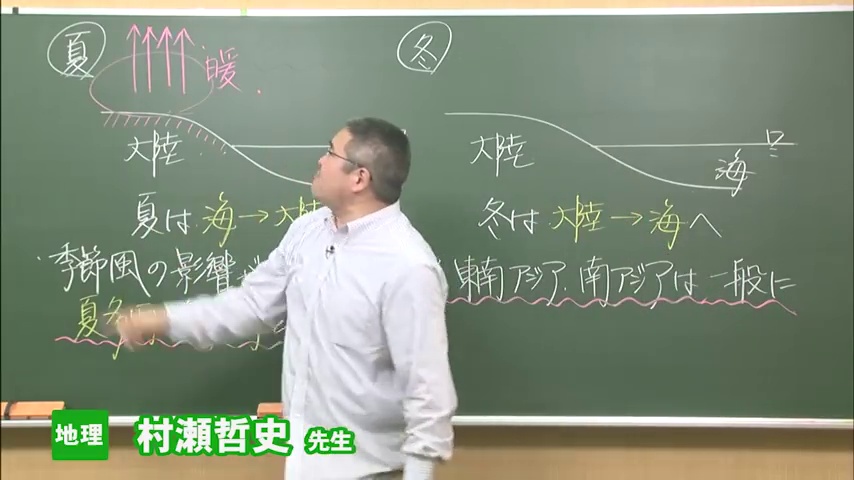 夏
暖
大陸
夏は 海→大陸
冬
大陸
海
冬は 大陸→海へ
・季節風の影響が
東南アジア、南アジアは一般に
夏
地理 村瀬哲史 先生